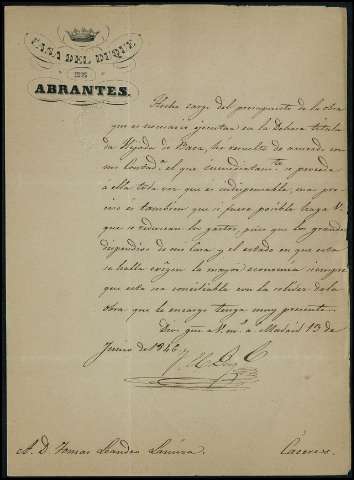 CASA DEL DUQUE
DE
ABRANTES.
Hecho cargo del presupuesto de la obra
que es necesario ejecutar en la Dehesa titula
da de Baca, he resuelto de acuerdo con
mi Contad.ª el que inmediatam.te se proceda
á ella toda vez que es indispensable, mas pre
ciso es tambien que si fuere posible haga V.
que se reduzcan los gastos, pues que los grandes
dispendios de mi Casa y el estado en que esta
se halla exigen la mayor economia siempre
que esta sea conciliable con la solidez de la
obra que le encargo tenga muy presente.
Dios gue á V. m.s a.s Madrid 13 de
Junio de 1846
A. D. Tomas Leandro
Caceres.